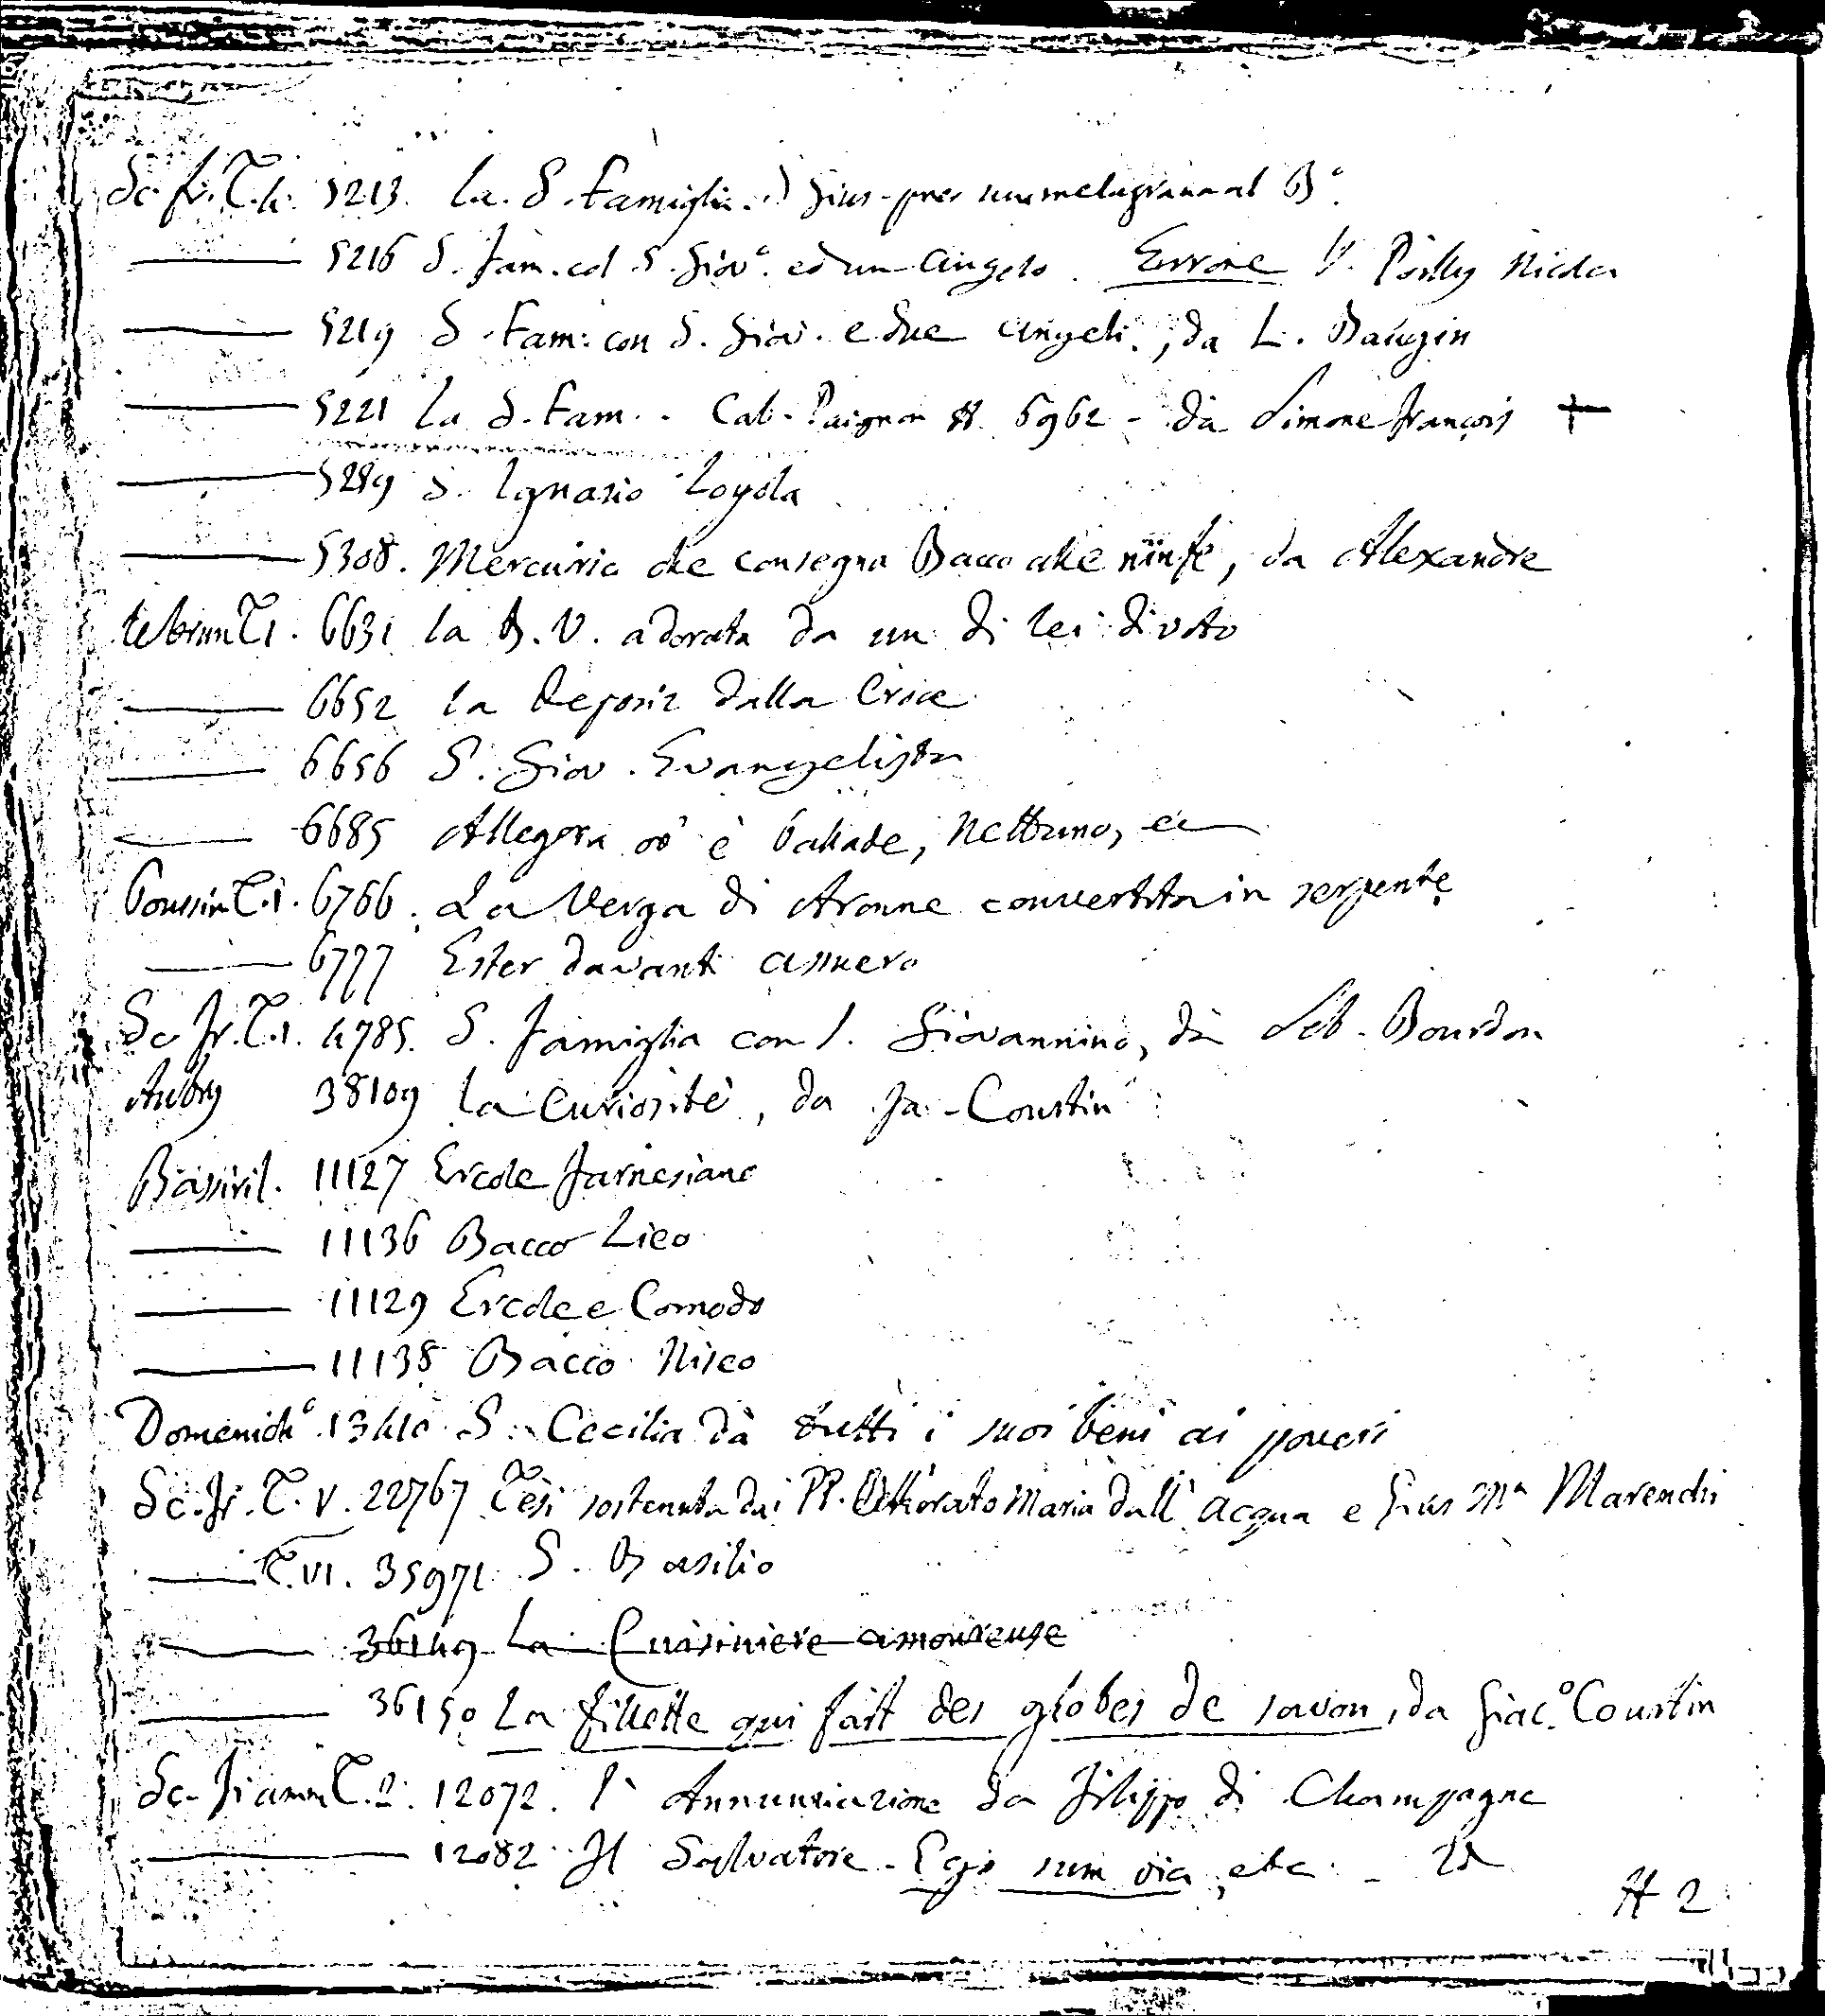 Sc. fr. T. 4. 5213. La. S. Famiglia. Gius. pres una melagrana al B.º
5216 S. Fam. col S. Giov.º ed un Angelo. Errore V. Poilly Nicola
5219 S. Fam. con S. Giov. e due Angeli, da L. Baugin
5221 La S. Fam. - Cab. Paignon N. 6962 - da Simone François +
5289 S. Ignazio Loyola
5308. Mercurio che consegna Bacco alle ninfe, da Alexandre
le brun T1. 6631 la B. V. adorata da un di lei divoto
6652 la Deposiz dalla Croce
6656 S. Giov. Evangelista
6685 Allegoria ov' è Pallade, Nettuno, ec
Poussin T.1. 6766. La Verga di Aronne convertita in serpente
6777 Ester davanti Assuero
Sc. fr. T.1. 4785. S. Famiglia con S. Giovannino, da Seb. Bourdon
Aubry 38109 la Curiosité, da Ja. Coustin
Bassiril. 11127 Ercole Farnesiano
11136 Bacco Lieo
11129 Ercole e Comodo
11138 Bacco Niseo
Domenich.º 13410 S. Cecilia dà tutti i suoi beni ai poveri
Sc. fr. T. V. 22767 Tesi sostenuta dai PP. Maria dall' Acqua e Gius Mª Marenchi
T. VI. 35971 S. Basilio
36149 La Cuisiniere amoureuse
36150 La fillette qui fait des globes de savon, da Giac.º Coustin
Sc. Fiamm T. 2. 12072. l' Annunziazione da Filippo di Champagne
12082 Il Salvatore - Ego sum via, etc.
N 2